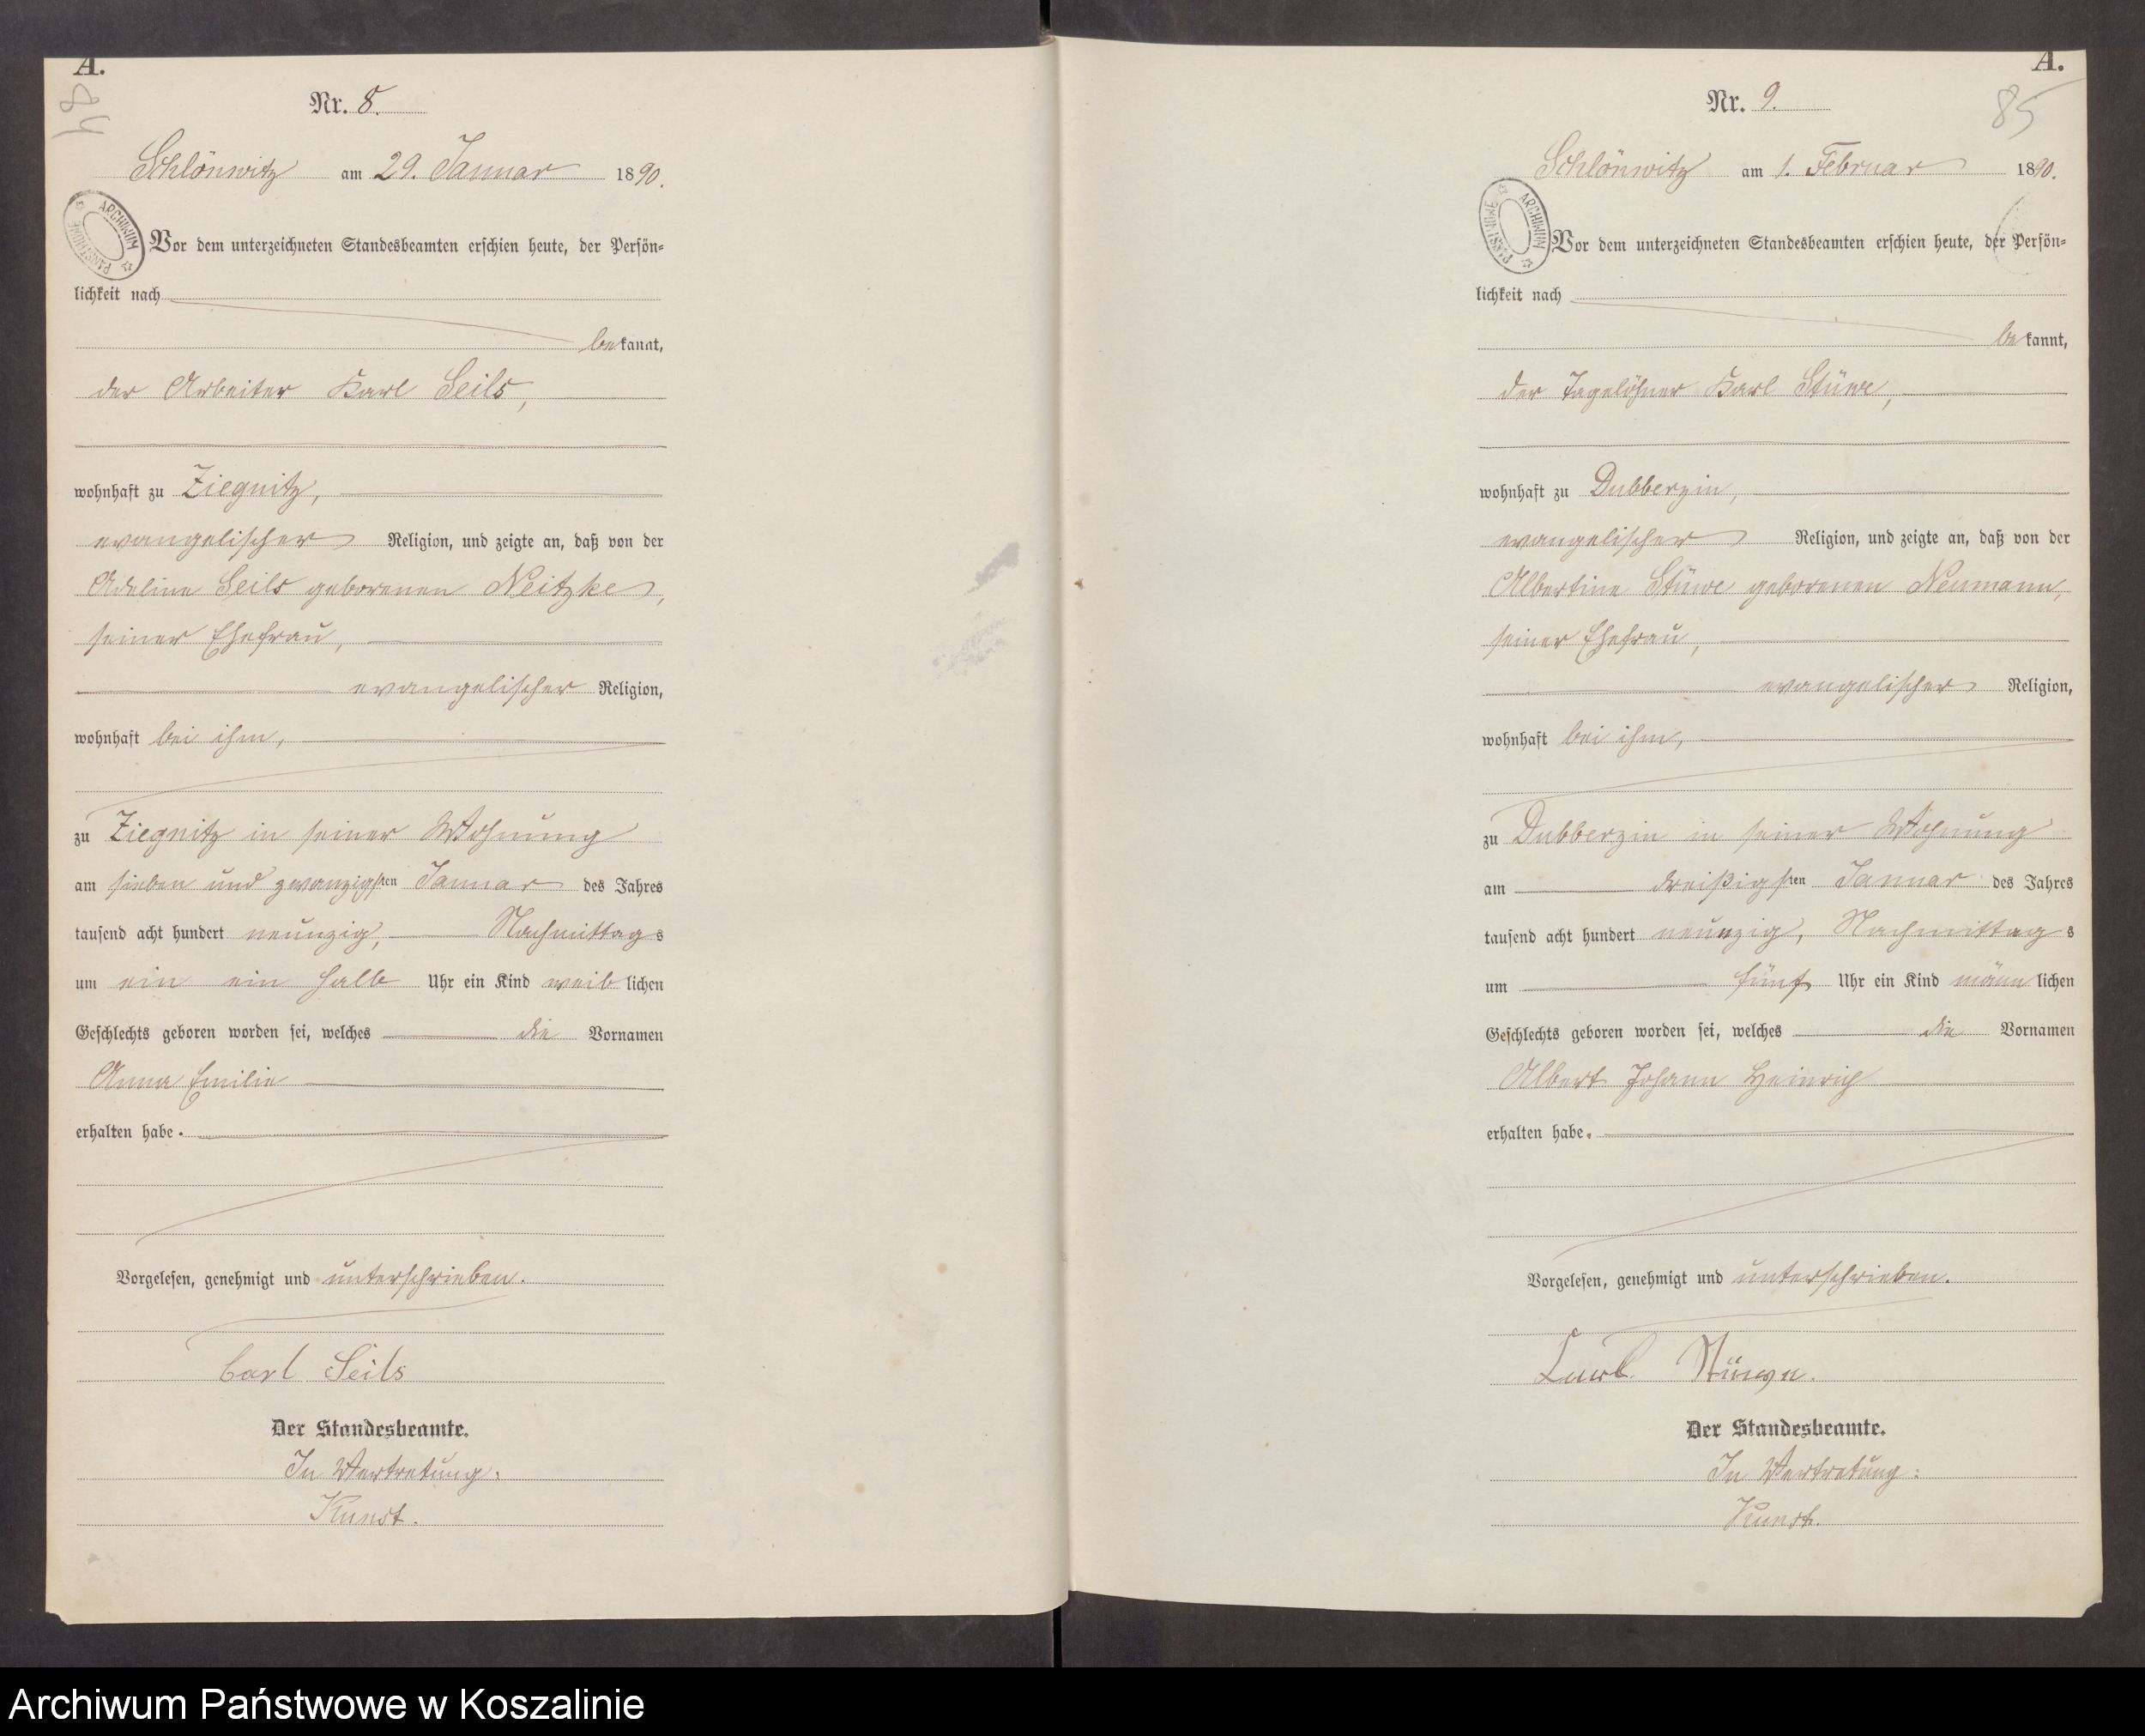 A.
84
Nr. 8.
Schlönwitz am 29. Januar 1890.
ARCHIWUM PAŃSTWOWE
Vor dem unterzeichneten Standesbeamten erschien heute, der Persön-
lichkeit nach
bekannt,
der Arbeiter Karl Seils,
wohnhaft zu Ziegnitz,
evangelischer Religion, und zeigte an, daß von der
Adeline Seils geborenen Neitzke,
seiner Ehefrau,
evangelischer Religion,
wohnhaft bei ihm,
zu Ziegnitz in seiner Wohnung
am sieben und zwanzigsten Januar des Jahres
tausend acht hundert neunzig, Nachmittags
um ein ein halb Uhr ein Kind weiblichen
Geschlechts geboren worden sei, welches die Vornamen
Anna Emilie
erhalten habe.
Vorgelesen, genehmigt und unterschrieben.
Carl Seils
Der Standesbeamte.
In Vertretung:
Kunst.
A.
85
Nr. 9.
Schlönwitz am 1. Februar 1890.
ARCHIWUM PAŃSTWOWE
Vor dem unterzeichneten Standesbeamten erschien heute, der Persön-
lichkeit nach
bekannt,
der Tagelöhner Karl Stüwe,
wohnhaft zu Dubberzin,
evangelischer Religion, und zeigte an, daß von der
Albertine Stüwe geborenen Neumann,
seiner Ehefrau,
evangelischer Religion,
wohnhaft bei ihm,
zu Dubberzin in seiner Wohnung
am dreißigsten Januar des Jahres
tausend acht hundert neunzig, Nachmittags
um fünf Uhr ein Kind männlichen
Geschlechts geboren worden sei, welches die Vornamen
Albert Johann Heinrich
erhalten habe.
Vorgelesen, genehmigt und unterschrieben.
Karl Stüwe.
Der Standesbeamte.
In Vertretung:
Kunst.
Archiwum Państwowe w Koszalinie